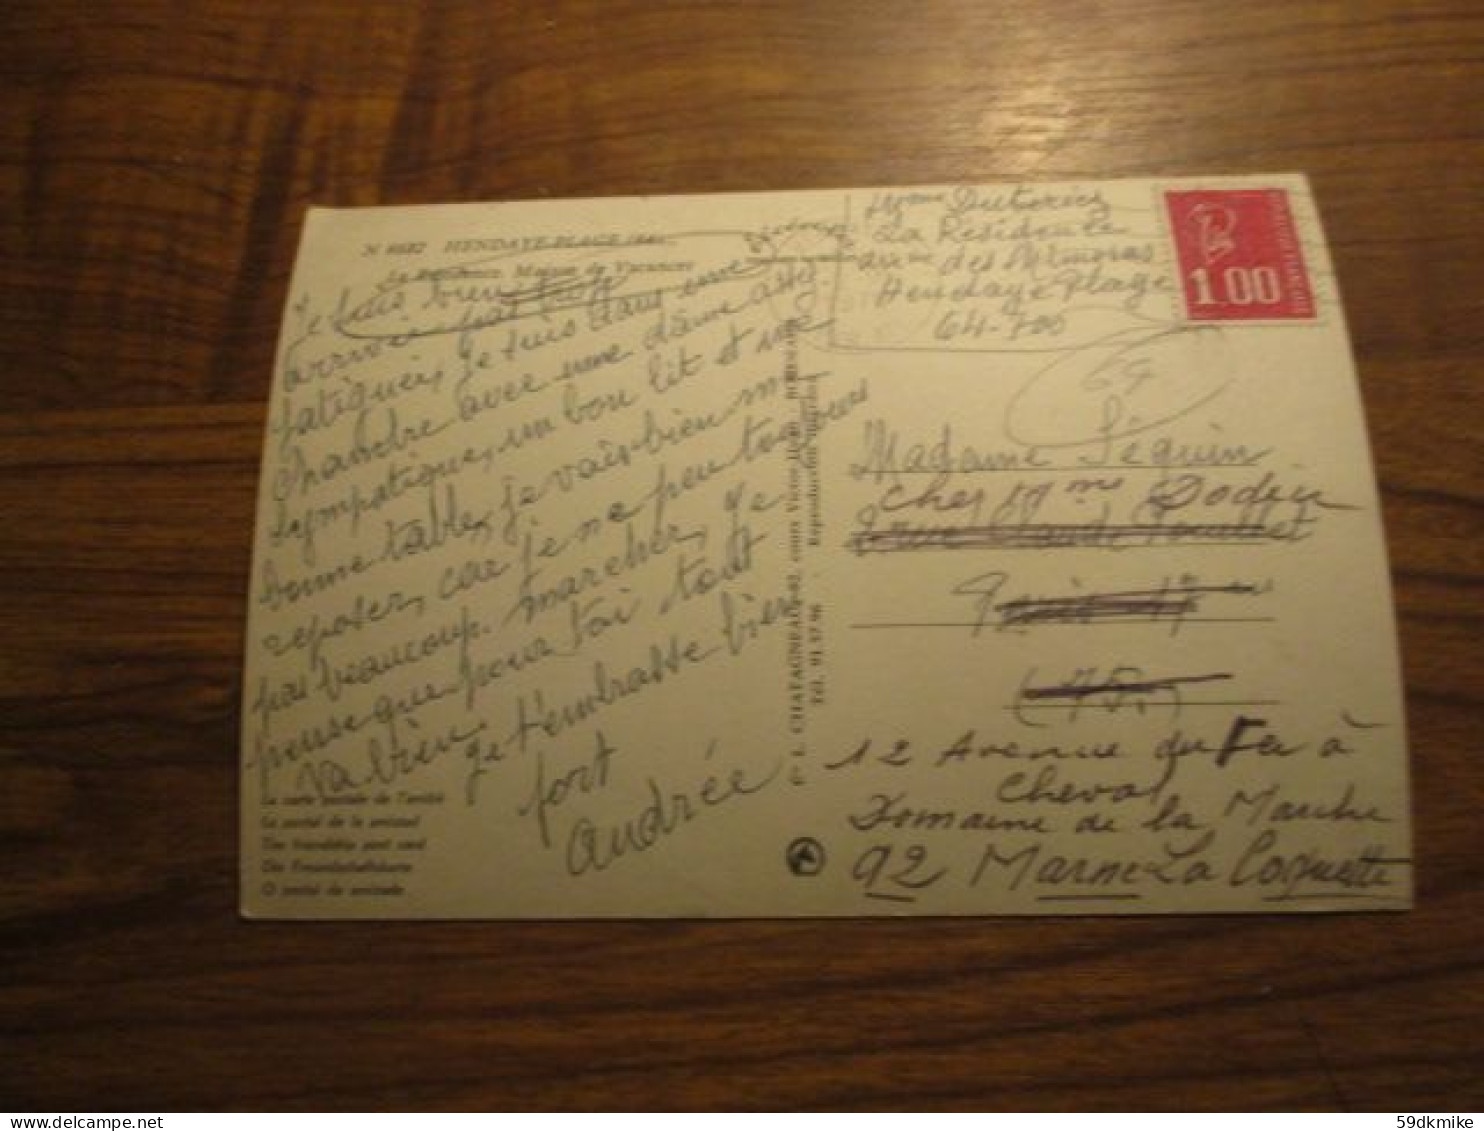 N 6682 HENDAYE-PLAGE
La Maison de Vacances
Je suis bien
arrivée pas trop
fatiguée, je suis dans une
chambre avec une dame assez
sympatique, un bon lit et une
bonne table, je vais bien me
reposer, car je ne peu toujours
pas beaucoup marcher, je
pense que pour toi tout
va bien
je t'embrasse bien
fort
Andrée
La carte postale de l'amitié
La postal de la amistad
The friendship post card
Die Freundschaftskarte
O postal de amizade
L. CHATAGNEAU-62, cours Victor Hugo BORDEAUX
Tél. 91 57 96 Reproduction interdite
Mme
La Résidence
des Mimosas
Hendaye Plage
64-700
1.00
64
Madame Séguin
chez Mme Dodin
rue Claude Pouillet
Paris 17
(75)
12 Avenue du Fer à
Cheval
Domaine de la Marche
92 Marne La Coquette
59dkmike